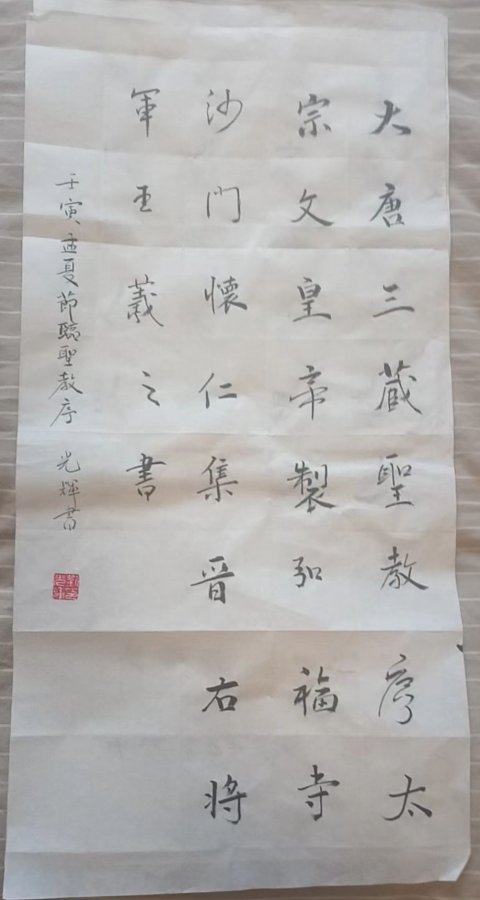 大唐三蔵聖教序太
宗文皇帝製弘福寺
沙門懐仁集晋右将
軍王羲之書
壬寅孟夏節臨聖教序 光輝書